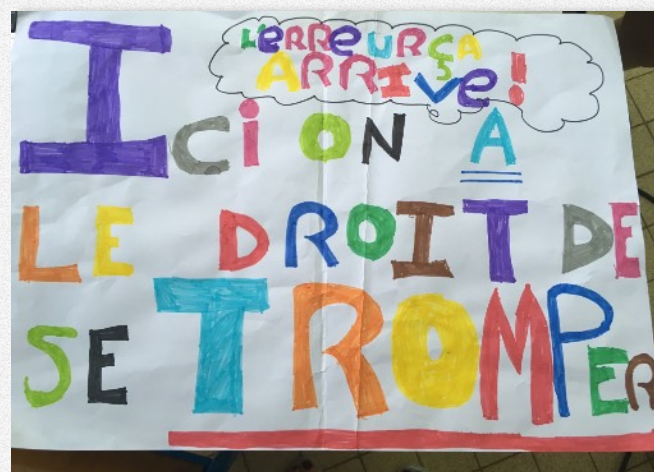 L'ERREUR ÇA
ARRIVE !
ICi ON A
LE DROIT DE
SE TROMPER